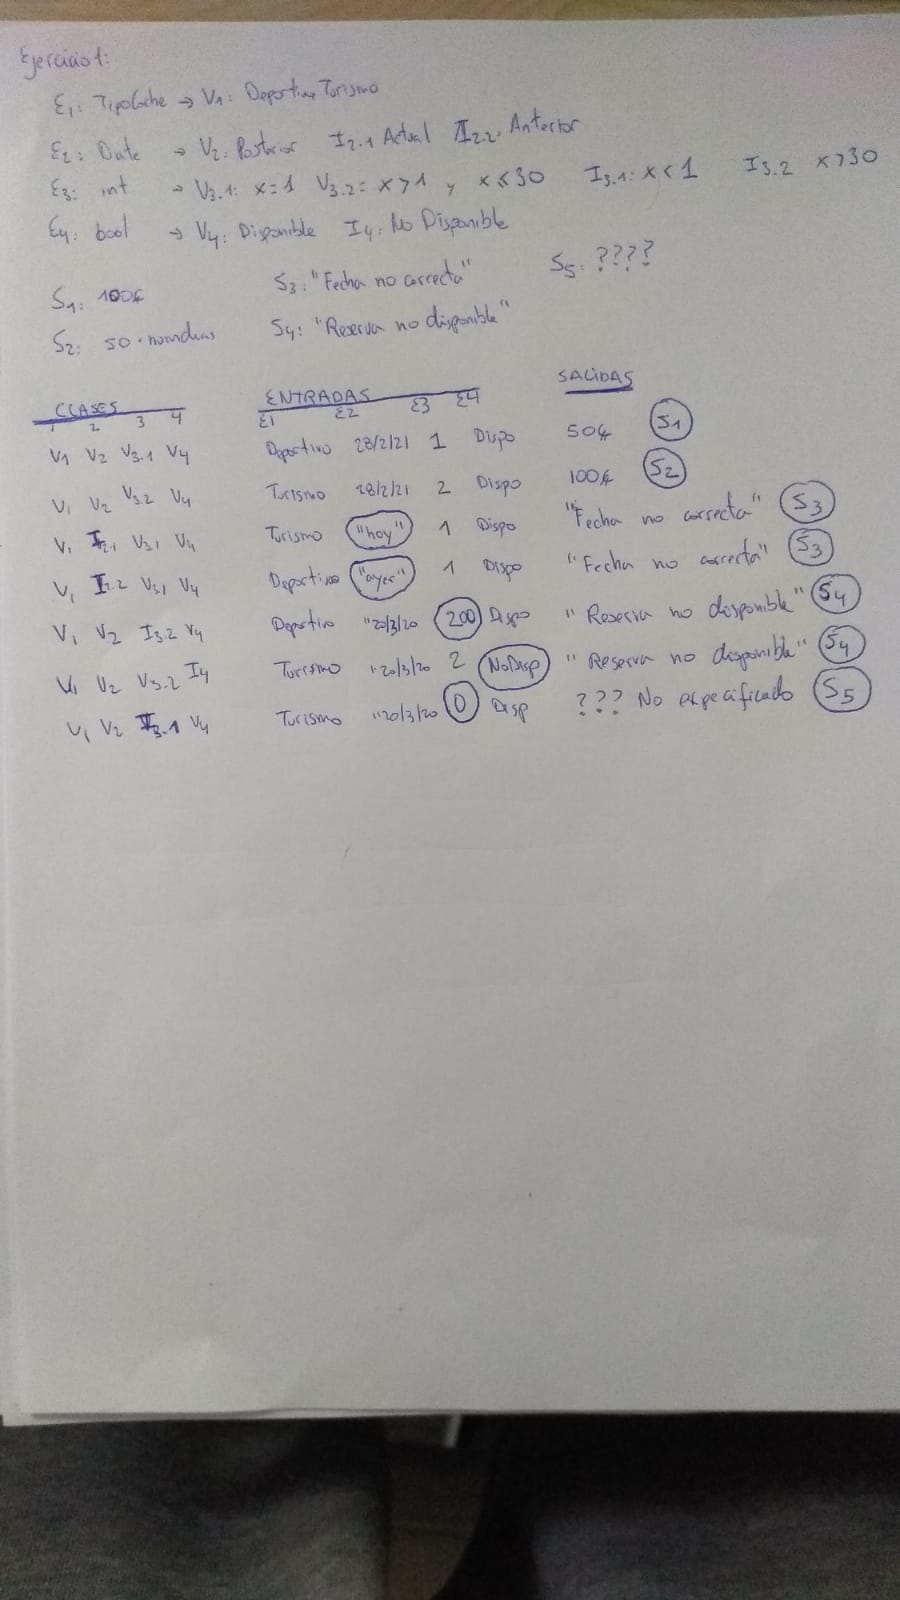 Ejercicio 1:
E1: TipoCoche → V1: Deportivo, Turismo
E2: Date → V2: Posterior I2.1 Actual I2.2: Anterior
E3: int → V3.1: x=1 V3.2= x>1 y x≤30 I3.1: x<1 I3.2 x>30
E4: bool → V4: Disponible I4: No Disponible
S1: 100€ S3: "Fecha no correcta" S5: ????
S2: 50·numdias S4: "Reserva no disponible"
CLASES ENTRADAS SALIDAS
1 2 3 4 E1 E2 E3 E4
V1 V2 V3.1 V4 Deportivo 28/2/21 1 Dispo 50€ S1
V1 V2 V3.2 V4 Turismo 28/2/21 2 Dispo 100€ S2
V1 I2.1 V3.1 V4 Turismo "hoy" 1 Dispo "Fecha no correcta" S3
V1 I2.2 V3.1 V4 Deportivo "ayer" 1 Dispo "Fecha no correcta" S3
V1 V2 I3.2 V4 Deportivo "20/3/20 200 Dispo "Reserva no disponible" S4
V1 V2 V3.2 I4 Turismo "20/3/20 2 NoDisp "Reserva no disponible" S4
V1 V2 I3.1 V4 Turismo "20/3/20 0 Disp ??? No especificado S5